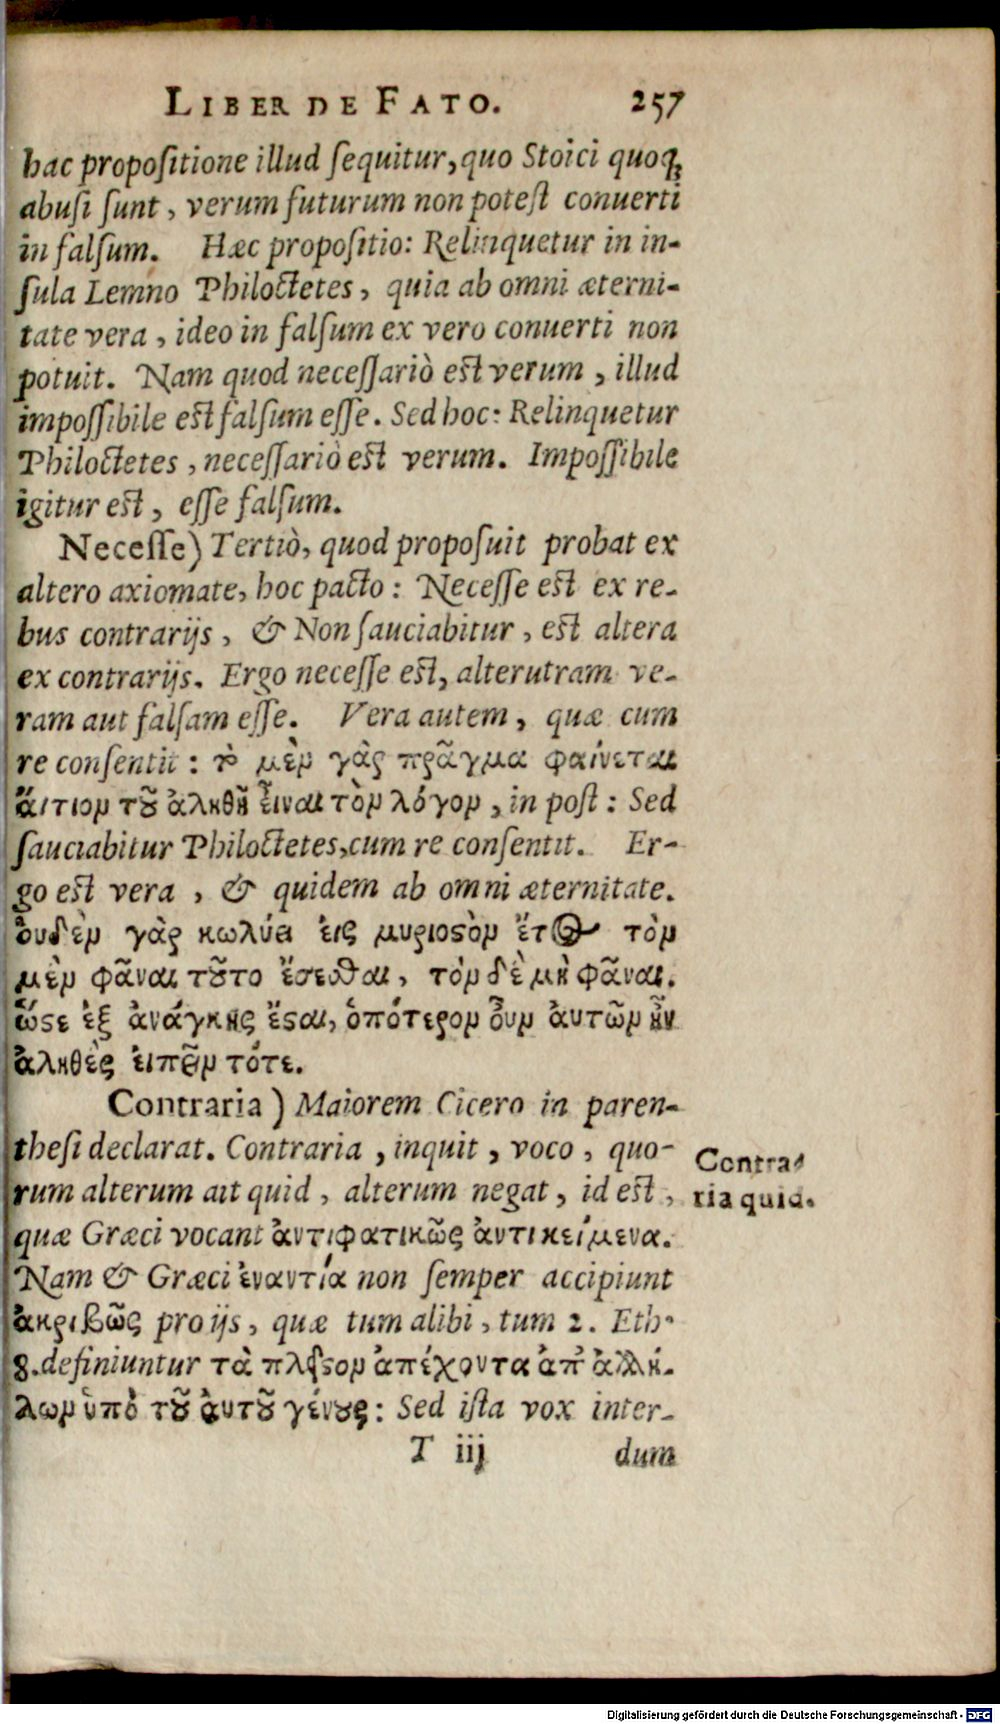 LIBER DE FATO. 257
hac propositione illud sequitur, quo Stoici quoq;
abusi sunt, verum futurum non potest conuerti
in falsum. Hæc propositio: Relinquetur in in-
sula Lemno Philoctetes, quia ab omni æterni-
tate vera, ideo in falsum ex vero conuerti non
potuit. Nam quod necessariò est verum, illud
impossibile est falsum esse. Sed hoc: Relinquetur
Philoctetes, necessariò est verum. Impossibile
igitur est, esse falsum.
Necesse) Tertiò, quod proposuit probat ex
altero axiomate, hoc pacto: Necesse est ex re-
bus contrarijs, & Non sauciabitur, est altera
ex contrarijs. Ergo necesse est, alterutram ve-
ram aut falsam esse. Vera autem, quæ cum
re consentit: τὸ μὲν γὰρ πρᾶγμα φαίνεται
ἄιτιον τοῦ ἀληθῆ εἶναι τὸν λόγον, in post: Sed
sauciabitur Philoctetes, cum re consentit. Er-
go est vera, & quidem ab omni æternitate.
ὀυδὲν γὰρ κωλύει ἐις μυριοστὸν ἔτος τὸν
μὲν φᾶναι τοῦτο ἔσεσθαι, τὸν δὲ μὴ φᾶναι.
ὥστε ἐξ ἀνάγκης ἔσται, ὁπότερον ὀῦν ἀυτῶν ἦν
ἀληθὲς ἐιπεῖν τότε.
Contraria) Maiorem Cicero in paren-
thesi declarat. Contraria, inquit, voco, quo-
rum alterum ait quid, alterum negat, id est,
quæ Græci vocant ἀντιφατικῶς ἀντικείμενα.
Nam & Græci ἐναντία non semper accipiunt
ἀκριβῶς pro ijs, quæ tum alibi, tum 2. Eth.
8. definiuntur τὰ πλεῖστον ἀπέχοντα ἀπ' ἀλλή-
λων ὑπὸ τοῦ ἀυτοῦ γένους: Sed ista vox inter-
T iij dum
Contra-
ria quid.
Digitalisierung gefördert durch die Deutsche Forschungsgemeinschaft - DFG